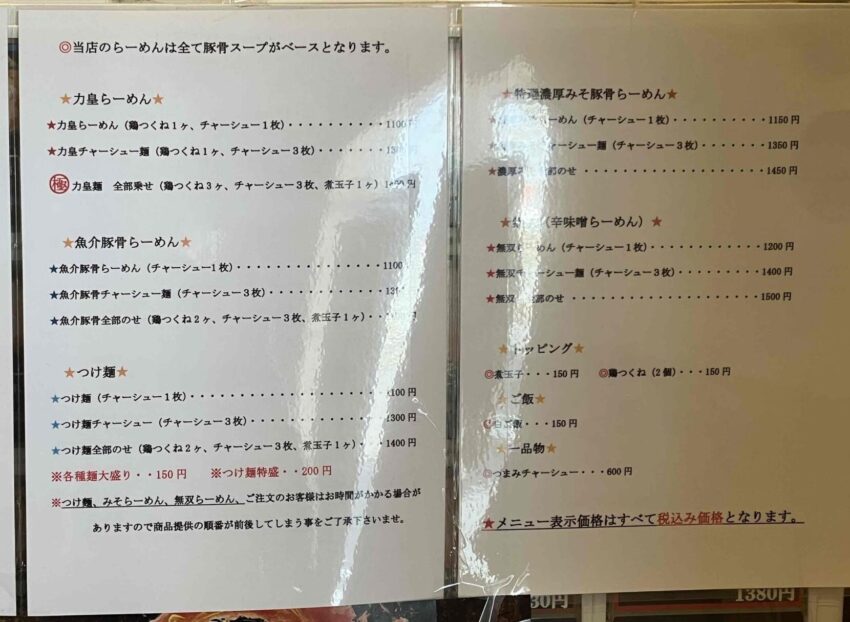 ◎当店のらーめんは全て豚骨スープがベースとなります。
★力皇らーめん★
★力皇らーめん（鶏つくね１ヶ、チャーシュー１枚）・・・・・・・・・・1100
★力皇チャーシュー麺（鶏つくね１ヶ、チャーシュー３枚）・・・・・・・
極 力皇麺　全部乗せ（鶏つくね３ヶ、チャーシュー３枚、煮玉子１ヶ）
★魚介豚骨らーめん★
★魚介豚骨らーめん（チャーシュー1枚）・・・・・・・・・・・・・・・1100
★魚介豚骨チャーシュー麺（チャーシュー３枚）・・・・・・・・・・・
★魚介豚骨全部のせ（鶏つくね２ヶ、チャーシュー３枚、煮玉子１ヶ）・・
★つけ麺★
★つけ麺（チャーシュー１枚）・・・・・・・・・・・・・・・・・・・1100円
★つけ麺チャーシュー（チャーシュー３枚）・・・・・・・・・・・・・1300円
★つけ麺全部のせ（鶏つくね２ヶ、チャーシュー３枚、煮玉子１ヶ）・・1400円
※各種麺大盛り・・150円　※つけ麺特盛・・200円
※つけ麺、みそらーめん、無双らーめん、ご注文のお客様はお時間がかかる場合が
ありますので商品提供の順番が前後してしまう事をご了承下さいませ。
★特選濃厚みそ豚骨らーめん★
らーめん（チャーシュー１枚）・・・・・・・・・・1150円
チャーシュー麺（チャーシュー３枚）・・・・・・・1350円
★濃厚 全部のせ・・・・・・・・・・・・・・・・・・1450円
（辛味噌らーめん）★
★無双らーめん（チャーシュー１枚）・・・・・・・・・・・1200円
★無双チャーシュー麺（チャーシュー３枚）・・・・・・・・1400円
★無双全部のせ・・・・・・・・・・・・・・・・・・・・1500円
★トッピング★
◎煮玉子・・・150円　◎鶏つくね（2個）・・・150円
★ご飯★
◎白ご飯・・・150円
★一品物★
◎つまみチャーシュー・・・600円
★メニュー表示価格はすべて税込み価格となります。
30円
1380円